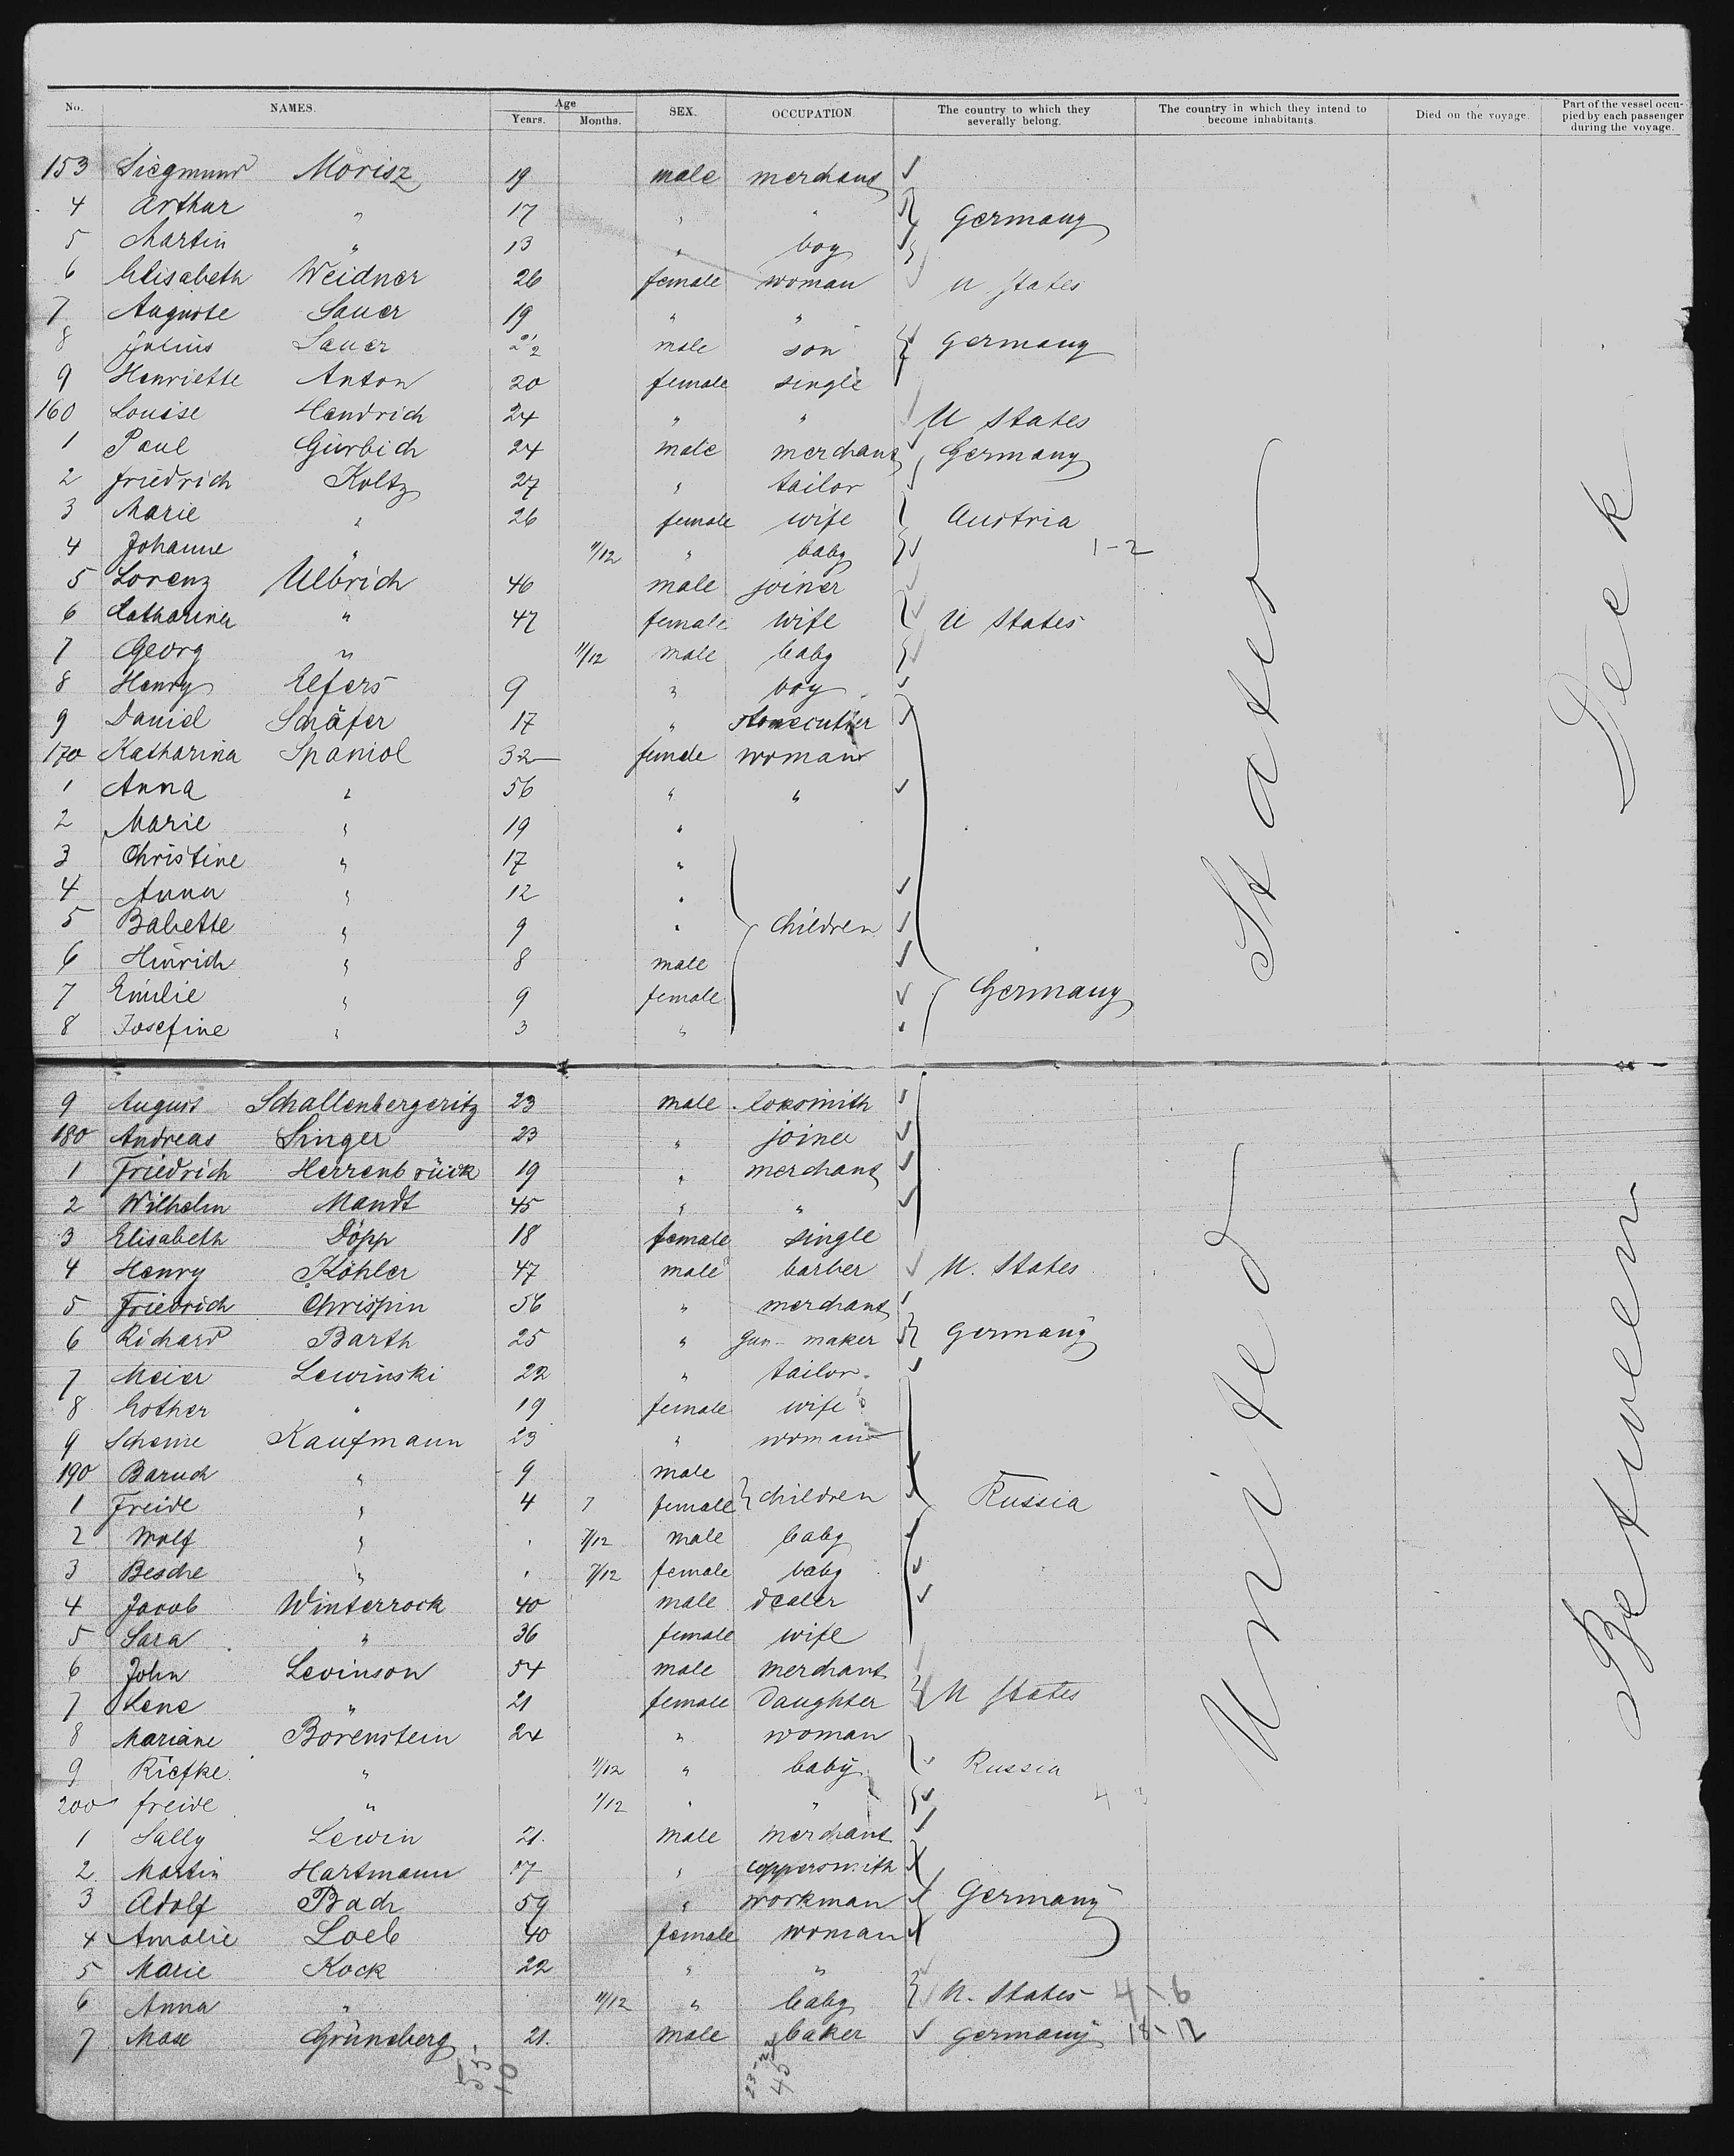 No. NAMES. Age Years. Months. SEX. OCCUPATION. The country to which they severally belong. The country in which they intend to become inhabitants. Died on the voyage. Part of the vessel occupied by each passenger during the voyage.
153 Siegmund Morisz 19 male merchant
4 Arthur " 17 " "  Germany
5 Martin " 13 " boy
6 Elisabeth Weidner 26 female woman U States
7 Auguste Sauer 19 " "
8 Julius Sauer male son Germany
9 Henriette Anton 20 female single
160 Louise Hendrich 24 " " U States
1 Paul Gürbich 24 male merchant Germany
2 Friedrich Koltz 27 " tailor
3 Marie " 26 female wife Austria
4 Johanne " 11/12 " baby 1-2
5 Lorenz Ulbrich 46 male joiner
6 Catharina " 47 female wife U States
7 Georg " 11/12 male baby
8 Henry Elfers 9 " boy
9 Daniel Schäfer 17 " stonecutter
170 Katharina Spaniol 32 female woman
1 Anna " 56 " "
2 Marie " 19 "
3 Christine " 17 "
4 Anna " 12 "
5 Babette " 9 " children
6 Heinrich " 8 male
7 Emilie " 9 female Germany
8 Josefine " 3 "
9 August Schallenbergeritz 23 male loksmith
180 Andreas Singer 23 " joiner
1 Friedrich Herrenbrück 19 " merchant
2 Wilhelm Mandt 45 " "
3 Elisabeth Döpp 18 female single
4 Henry Köhler 47 male barber U. States
5 Friedrich Chrispin 56 " merchant
6 Richard Barth 25 " gun-maker Germany
7 Meier Lewinski 22 " tailor
8 Esther " 19 female wife
9 Scheine Kaufmann 23 " woman
190 Baruch " 9 male
1 Freide " 4 female children Russia
2 Wolf " 7/12 male baby
3 Besche " 7/12 female baby
4 Jacob Winterrock 40 male dealer
5 Sara " 36 female wife
6 John Levinson 54 male merchant
7 Lene " 21 female daughter U States
8 Mariane Borenstein 24 " woman
9 Riefke " 11/12 " baby Russia
200 Freide " 1/12 " "
1 Sally Lewin 21. male merchant
2 Martin Hartmann 17 " coppersmith
3 Adolf Bach 59 " workman Germany
4 Amalie Loeb 40 female woman
5 Marie Kock 22 " "
6 Anna " 11/12 " baby U. States 4 \ 6
7 Max Grüneberg 21. male baker Germany 18-12
55-
10
23-22
45
United States
Between Deek